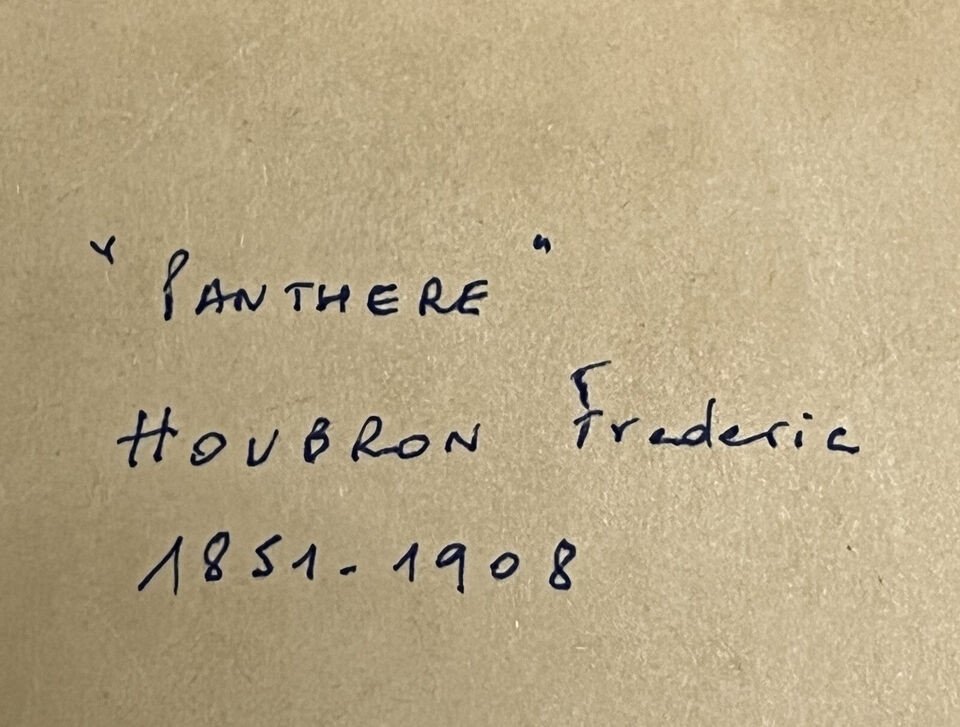 "PANTHERE"
HOUBRON Frederic
1851-1908